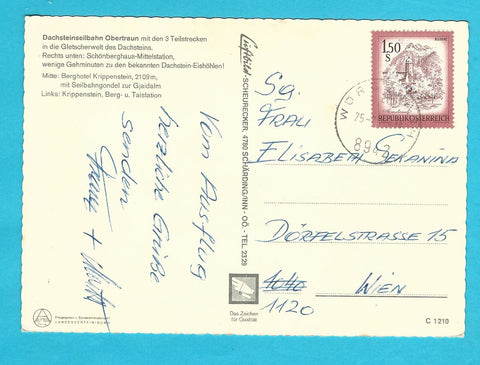 Dachsteinseilbahn Obertraun mit den 3 Teilstrecken
in die Gletscherwelt des Dachsteins.
Rechts unten: Schönberghaus-Mittelstation,
wenige Gehminuten zu den bekannten Dachstein-Eishöhlen!
Mitte: Berghotel Krippenstein, 2109 m,
mit Seilbahngondel zur Gjaidalm
Links: Krippenstein, Berg- u. Talstation
Vom Ausflug
herzliche Grüße
senden
+
Luftbild-SCHEURECKER, 4780 SCHÄRDING/INN - OÖ. - TEL. 2329
1.50
S
REPUBLIK ÖSTERREICH
WÖR
25.
8942
Sg.
Frau
Elisabeth Sekanina
Dörfelstrasse 15
1040 Wien
1120
Das Zeichen
für Qualität
LANDESVERTEIDIGUNG
C 1210